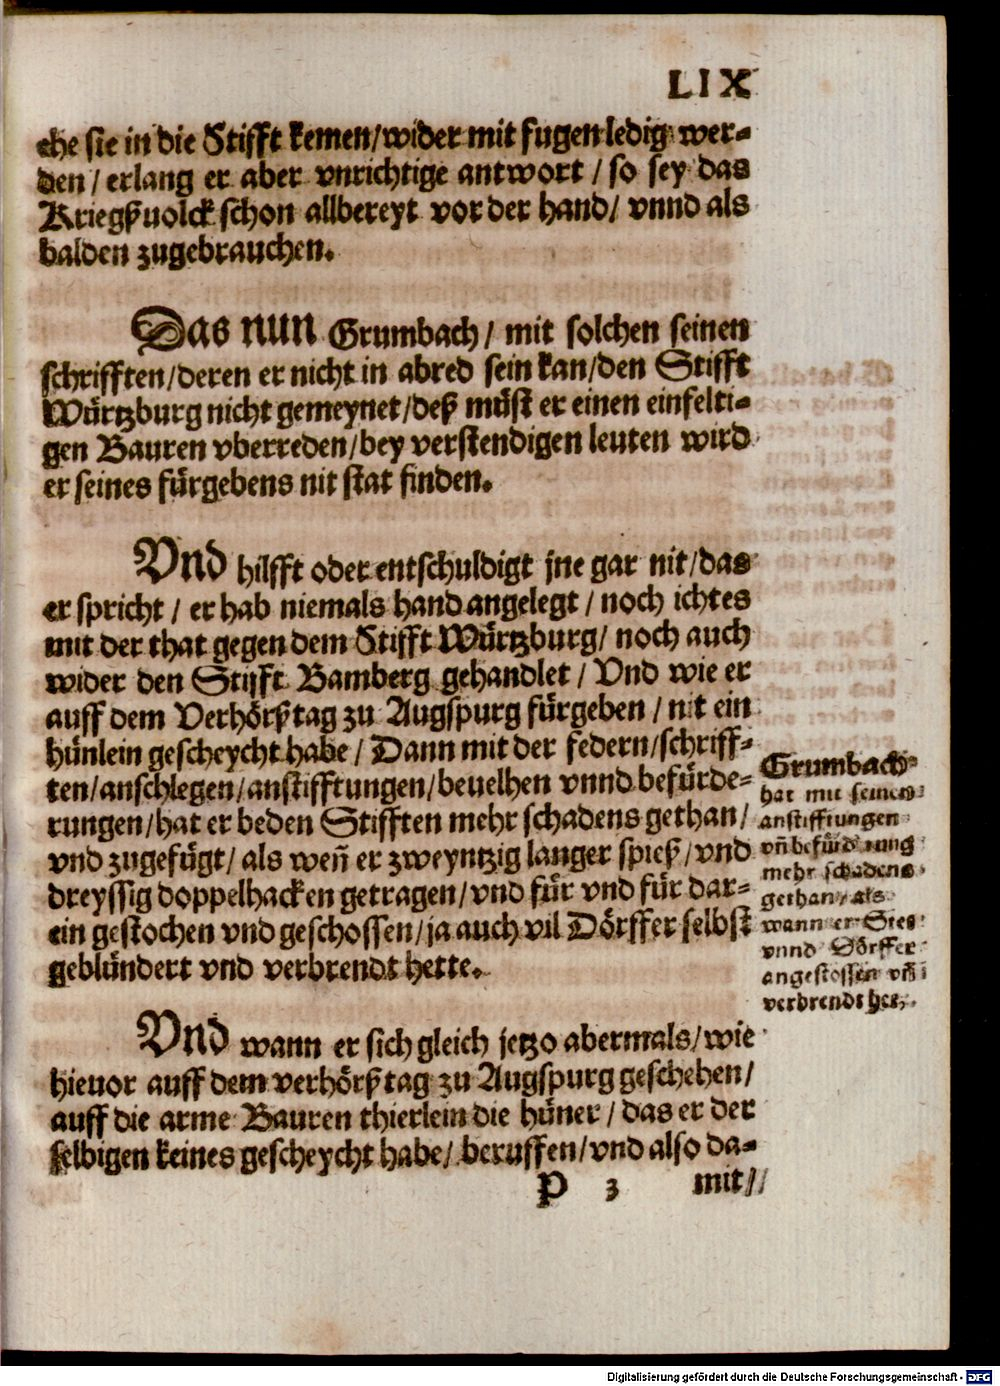 LIX
ehe sie in die Stifft kemen/wider mit fugen ledig wer-
den / erlang er aber vnrichtige antwort / so sey das
Kriegßuolck schon allbereyt vor der hand/ vnnd als
balden zugebrauchen.
Das nun Grumbach/ mit solchen seinen
schrifften/deren er nicht in abred sein kan/den Stifft
Würtzburg nicht gemeynet/deß müst er einen einfelti-
gen Bauren vberreden/bey verstendigen leuten wird
er seines fürgebens nit stat finden.
Vnd hilfft oder entschuldigt jne gar nit/das
er spricht / er hab niemals hand angelegt / noch ichtes
mit der that gegen dem Stifft Würtzburg/ noch auch
wider den Stifft Bamberg gehandlet / Vnd wie er
auff dem Verhörßtag zu Augspurg fürgeben / nit ein
hünlein gescheycht habe / Dann mit der federn/schriff-
ten/anschlegen/anstifftungen/beuelhen vnnd befürde-
rungen/hat er beden Stifften mehr schadens gethan/
vnd zugefügt/ als weñ er zweyntzig langer spieß/vnd
dreyssig doppelhacken getragen/vnd für vnd für dar-
ein gestochen vnd geschossen/ja auch vil Dörffer selbst
geblündert vnd verbrendt hette.
Grumbach
hat mit seinen
anstifftungen
vñ befürderung
mehr schadens
gethan/als
wann er Stet
vnnd Dörffer
angestossen vñ
verbrendt het.
Vnd wann er sich gleich jetzo abermals/wie
hieuor auff dem verhörßtag zu Augspurg geschehen/
auff die arme Bauren thierlein die hüner / das er der
selbigen keines gescheycht habe/ beruffen/vnd also da-
P 3 mit/
Digitalisierung gefördert durch die Deutsche Forschungsgemeinschaft - DFG